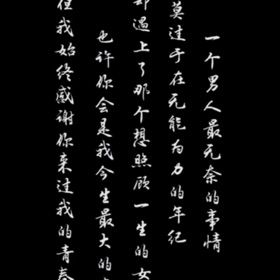 一个男人最无奈的事情
莫过于在无能为力的年纪
却遇上了那个想照顾一生的女
也许你会是我今生最大的
但我始终感谢你来过我的青春